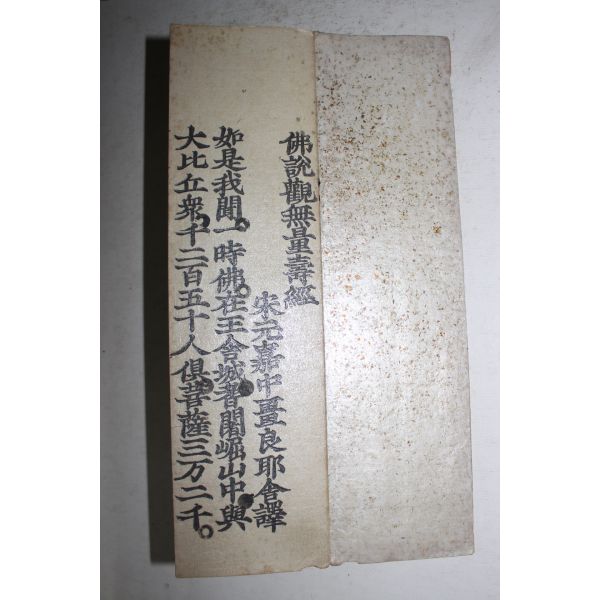 佛說觀無量壽經
宋元嘉中畺良耶舍譯
如是我聞。一時佛。在王舍城。耆闍崛山中。與
大比丘衆。千二百五十人俱。菩薩三万二千。